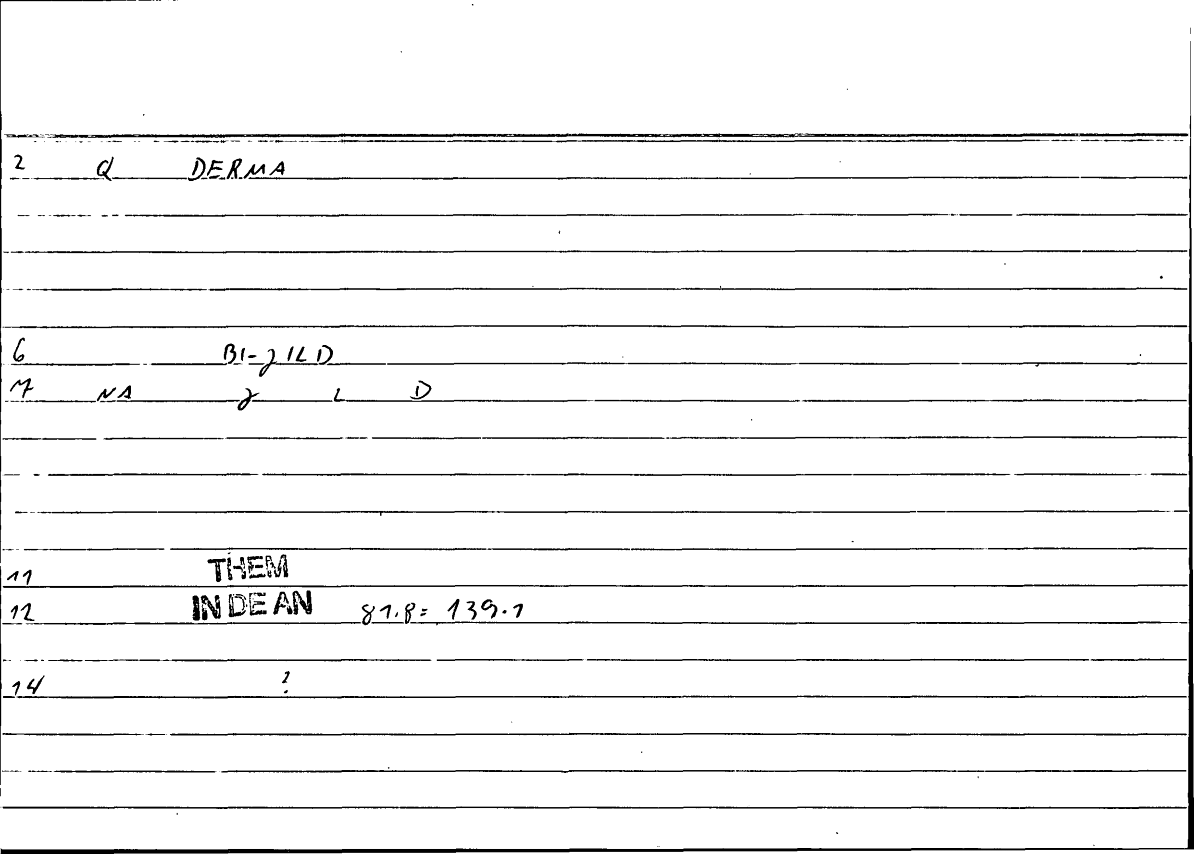 2 Q DERMA
6 BI-JILD
7 NA J L D
11 THEM
12 IN DE AN 81.8= 139.1
14 ?